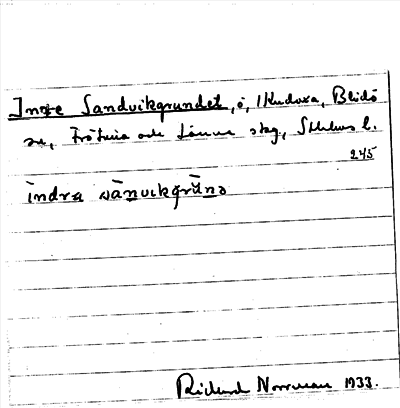 Inre Sandvikgrundet, ö, i Kudoxa, Blidö
sn, Frötuna och Länna skg, Sthlms l.
245
indra sānvikgrūnd
Rickard Norrman 1933.